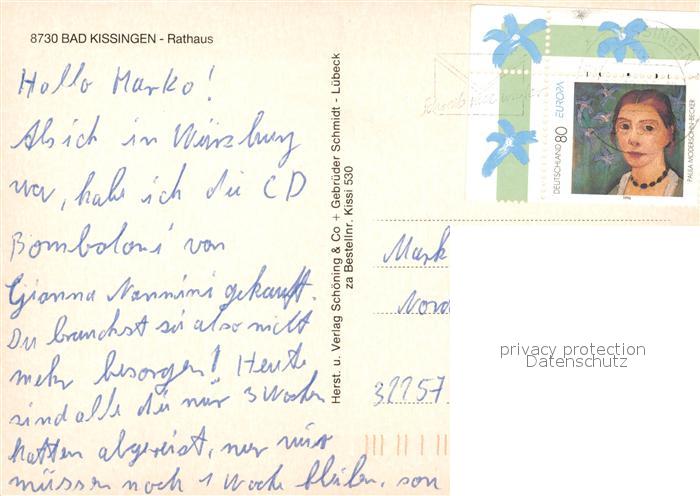 8730 BAD KISSINGEN - Rathaus
Hallo Marko!
Als ich in Würzburg
war, habe ich die CD
Bomboloni von
Gianna Nannini gekauft.
Du brauchst sie also nicht
mehr besorgen! Heute
sind alle die nur 3 Wochen
hatten abgereist, nur wir
müssen noch 1 Woche bleiben, son
Herst. u. Verlag Schöning & Co + Gebrüder Schmidt - Lübeck
za Bestellnr. Kissi 530
DEUTSCHLAND 80 EUROPA
PAULA MODERSOHN-BECKER
Mark
Nord
32257
privacy protection
Datenschutz